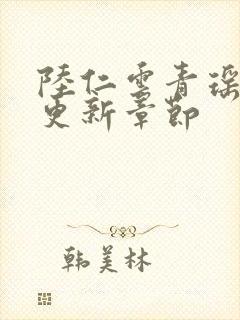 陸仁雲青瑶
更新章節
韩美林